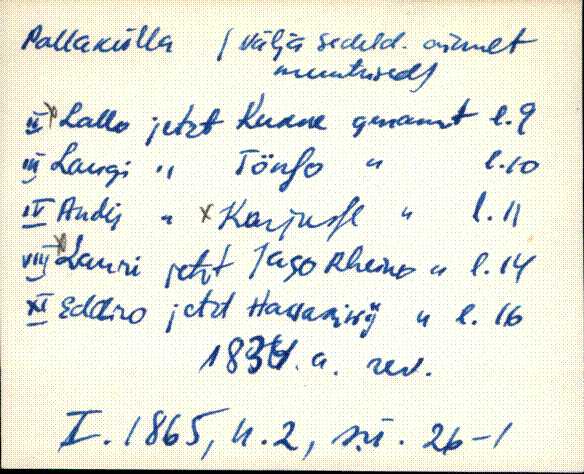 Pallakülla / välja sedeld. ainult
muutused /
II x Lallo jetzt Kuune genannt l. 9
III Laugi " Tönso " l. 10
IV Andij " x Karjusse " l. 11
VIII x Lauri jetzt Jago Rheino " l. 14
XI Eddiro jetzt " l. 16
a. rev.
I. 1865, n. 2, s.ü. 26-1